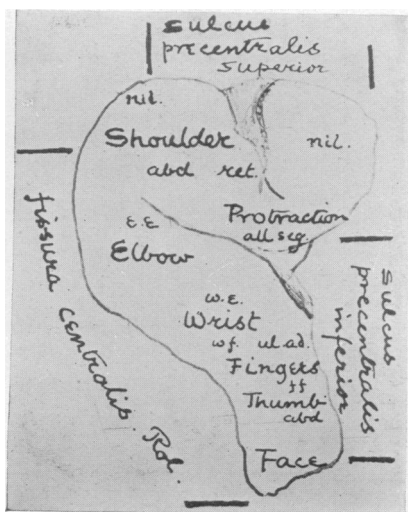 sulcus
precentralis
superior
nil.
nil.
Shoulder
abd ret.
Protraction
all seg.
E.E
Elbow
w.E.
Wrist
wf. ul.ad.
Fingers
ff
Thumb
abd
Face
fissura centralis Rol.
Sulcus
precentralis
inferior